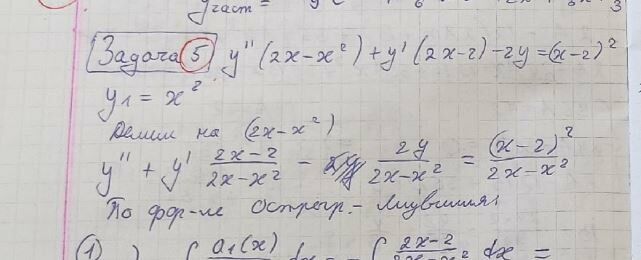 y част =
Задача 5 y'' (2x-x²) + y' (2x-2) - 2y = (x-2)²
y₁ = x²
Делим на (2x-x²)
y'' + y' (2x-2)/(2x-x²) - 2y/(2x-x²) = (x-2)²/(2x-x²)
По фор-ле Острогр.-Лиувилля:
1) ∫ a₁(x) ∫ (2x-2) dx =